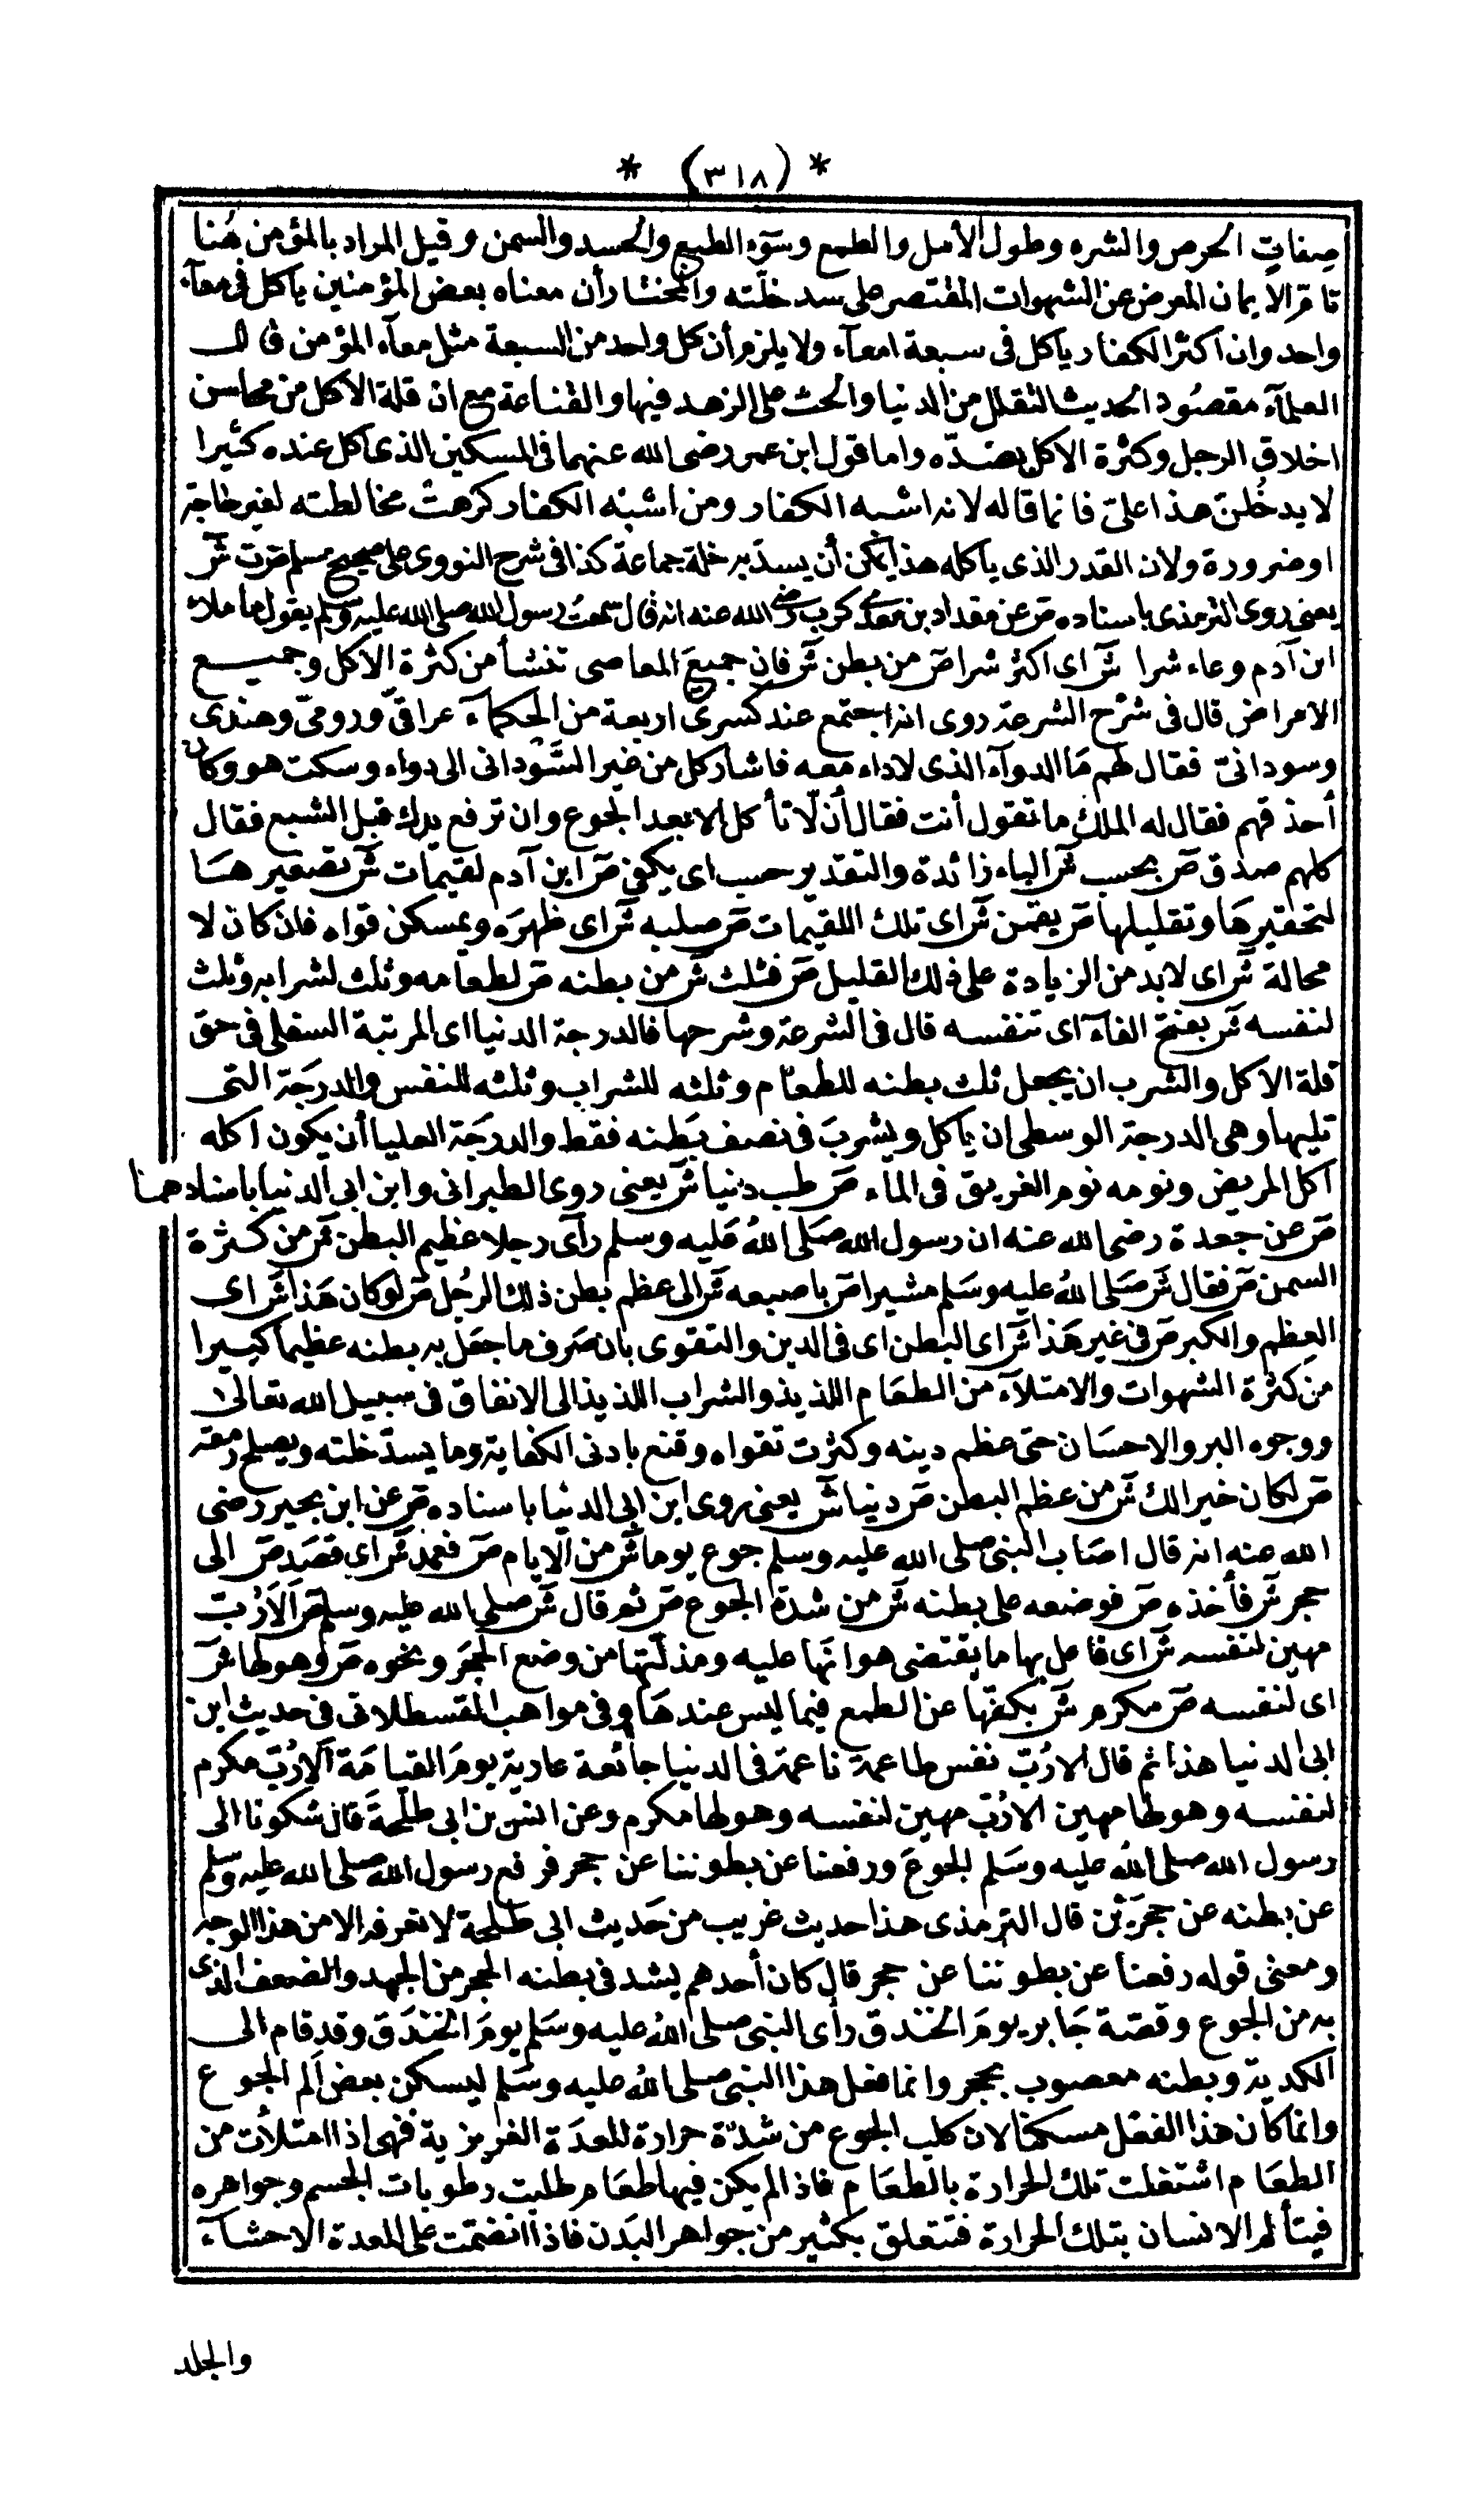 * (٣١٨) *
صفات الحرص والشره وطول الأمل والطمع وسوء الطبع والحسد والسمن وقيل المراد بالمؤمن هنا
تام الايمان المعرض عن الشهوات المقتصر على سد خلته والمختار أن معناه بعض المؤمنين يأكل فى معآء
واحد وان اكثر الكفار يأكل فى سبعة امعآء ولا يلزم أن كل واحد من السبعة مثل معآء المؤمن قال
العلمآء مقصود الحديث التقلل من الدنيا والحث على الزهد فيها والقناعة مع ان قلة الاكل من محاسن
اخلاق الرجل وكثرة الاكل بضدّه واما قول ابن عمر رضى الله عنهما فى المسكين الذى أكل عنده كثيرا
لا يدخُلنّ هذا علىّ فانما قاله لانه اشبه الكفار ومن اشبه الكفار كرهت مخالطته لغير حاجة
او ضرورة ولان القدر الذى يأكله هذا يمكن أن يسد به خلة جماعة كذا فى شرح النووى على صحيح مسلم ص ت ش
يعنى روى الترمذى باسناده ص عن مقداد بن معدى كرب رضى الله عنه انه قال سمعت رسول الله صلى الله عليه وسلم يقول ما ملاء
ابن آدم وعاء شرا ش اى اكثر شرا ص من بطن ش فان جميع المعاصى تنشأ من كثرة الاكل وجميع
الامراض قال فى شرح الشرعة روى انه اجتمع عند كسرى اربعة من الحكمآء عراقىّ ورومىّ وهندى
وسودانىّ فقال لهم ما الدوآء الذى لاداء معه فاشار كل من غير السَّودانى الى دواء وسكت هو وكان
أحذقهم فقال له الملك ما تقول أنت فقال أن لا تأكل الا بعد الجوع وان ترفع يدك قبل الشبع فقال
كلهم صدق ص بحسب ش الباء زائدة والتقدير حسب اى يكفى ص ابن آدم لقيمات ش تصغيرها
لتحقيرها وتقليلها ص يقمن ش اى تلك اللقيمات ص صلبه ش اى ظهره ويمسكن قواه فان كان لا
محالة ش اى لابد من الزيادة على ذلك القليل ص فثلث ش من بطنه ص لطعامه وثلث لشرابه وثلث
لنفسه ش بفتح الفاء اى تنفسه قال فى الشرعة وشرحها فالدرجة الدنيا اى المرتبة السفلى فى حق
قلة الاكل والشرب ان يجعل ثلث بطنه للطعام وثلثه للشراب وثلثه للنفس والدرجة التى
تليها وهى الدرجة الوسطى ان يأكل ويشرب فى نصف بطنه فقط والدرجة العليا أن يكون اكله
أكل المريض ونومه نوم الغريق فى الماء ص طب دنيا ش يعنى روى الطبرانى وابن ابى الدنيا باسنادهما
ص عن جعدة رضى الله عنه ان رسول الله صلى الله عليه وسلم رأى رجلا عظيم البطن ش من كثرة
السمن ص فقال ش صلى الله عليه وسلم مشيرا ص باصبعه ش الى عظم بطن ذلك الرجل ص لو كان هذا ش اى
العظم والكبر ص فى غير هذا ش اى البطن اى فى الدين والتقوى بان صرف ما جعل به بطنه عظيما كبيرا
من كثرة الشهوات والامتلآء من الطعام اللذيذ والشراب اللذيذ الى الانفاق فى سبيل الله تعالى
ووجوه البر والاحسان حتى عظم دينه وكثرت تقواه وقنع بادنى الكفاية وما يسدّ خلته ويصلح رمقه
ص لكان خيرا لك ش من عظم البطن ص دنيا ش يعنى روى ابن ابى الدنيا باسناده ص عن ابن بجير رضى
الله عنه انه قال اصاب النبى صلى الله عليه وسلم جوع يوما ش من الايام ص فعمد ش اى قصد ص الى
حجر ش فأخذه ص فوضعه على بطنه ش من شدة الجوع ص ثم قال ش صلى الله عليه وسلم ص ألا رُبّ
مهين لنفسه ش اى فاعل بها ما يقتضى هوانها عليه ومذلتها من وضع الحجر ونحوه ص وهو لها ش
اى لنفسه ص مكرم ش بكفها عن الطمع فيما ليس عندها وفى مواهب القسطلانى فى حديث ابن
ابى الدنيا هذا ثم قال الا رُبّ نفس طاعمة ناعمة فى الدنيا جائعة عارية يوم القيامة الا رُبّ مكرم
لنفسه وهو لها مهين الا رُبّ مهين لنفسه وهو لها مكرم وعن انس بن ابى طلحة قال شكونا الى
رسول الله صلى الله عليه وسلم الجوع ورفعنا عن بطوننا عن حجر فرفع رسول الله صلى الله عليه وسلم
عن بطنه عن حجرين قال الترمذى هذا حديث غريب من حديث ابى طلحة لا نعرفه الا من هذا الوجه
ومعنى قوله رفعنا عن بطوننا عن حجر قال كان أحدهم يشد فى بطنه الحجر من الجهد والضعف الذى
به من الجوع وقصة جابر يوم الخندق رأى النبى صلى الله عليه وسلم يوم الخندق وقد قام الى
الكدية وبطنه معصوب بحجر وانما فعل هذا النبى صلى الله عليه وسلم ليسكن بعض ألم الجوع
وانما كان هذا الفعل مسكنا لان كلب الجوع من شدّة حرارة المعدة الغريزية فهى اذا امتلأت من
الطعام اشتغلت تلك الحرارة بالطعام فاذا لم يكن فيها طعام طلبت رطوبات الجسم وجواهره
فيتألم الانسان بتلك الحرارة فتتعلق بكثير من جواهر البدن فاذا انضمت على المعدة الاحشآء
والجلد